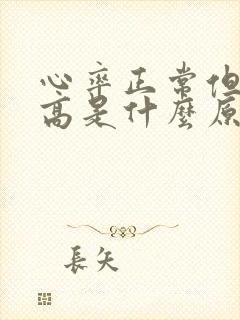 心率正常但
高是什麼原
長矢